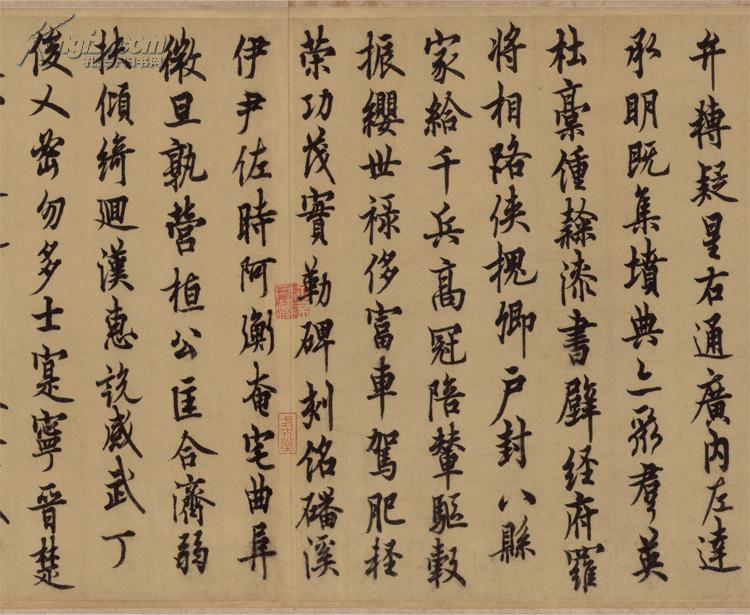 弁轉疑星右通廣內左達
承明既集墳典亦聚羣英
杜稾鍾隸漆書壁経府羅
将相路侠槐卿戶封八縣
家給千兵高冠陪輦驅轂
振纓世禄侈富車駕肥軽
策功茂實勒碑刻銘磻溪
伊尹佐時阿衡奄宅曲阜
微旦孰營桓公匡合濟弱
扶傾綺迴漢惠説感武丁
俊乂密勿多士寔寧晉楚